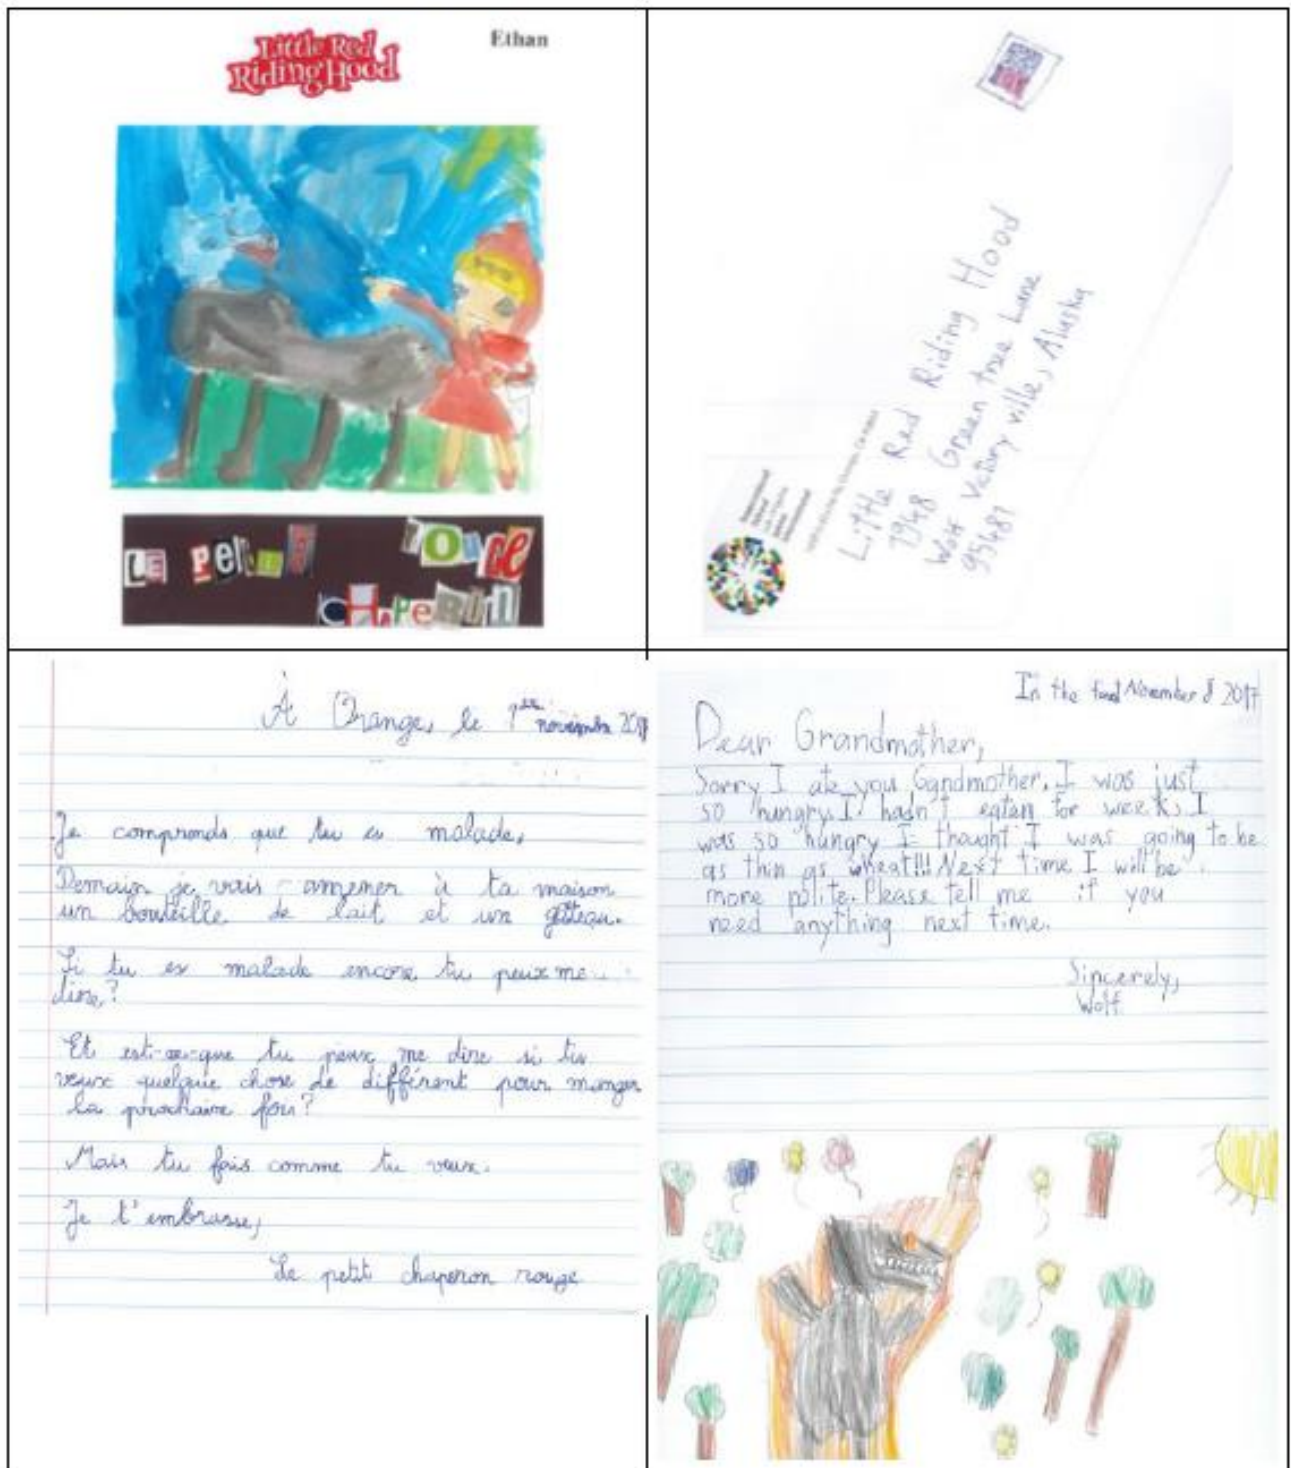 Little Red
Riding Hood
Ethan
LE PETIT ROUGE
CHAPERON
Little Red Riding Hood
1948 Green tree Lane
Victory ville, Alaska
95481
À Orange, le 1er novembre 2017
Je comprends que tu es malade,
Demain je vais amener à ta maison
un bouteille de lait et un gâteau.
Si tu es malade encore tu peux me
dire?
Et est-ce-que tu peux me dire si tu
veux quelque chose de différent pour manger
la prochaine fois?
Mais tu fais comme tu veux.
Je t'embrasse,
Le petit chaperon rouge
In the November 8 2017
Dear Grandmother,
Sorry I ate you Gandmother. I was just
so hungry I hadn't eaten for weeks. I
was so hungry I thought I was going to be
as thin as wheat!!! Next time I will be
more polite. Please tell me if you
need anything next time.
Sincerely,
Wolf